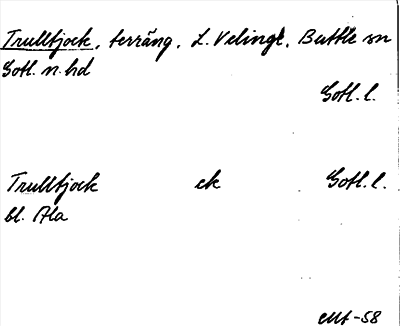 Trulltjock, terräng, L. Velinge, Buttle sn
Gotl. n. hd
Gotl. l.
Trulltjock ck Gotl. l.
bl. Ala
-58